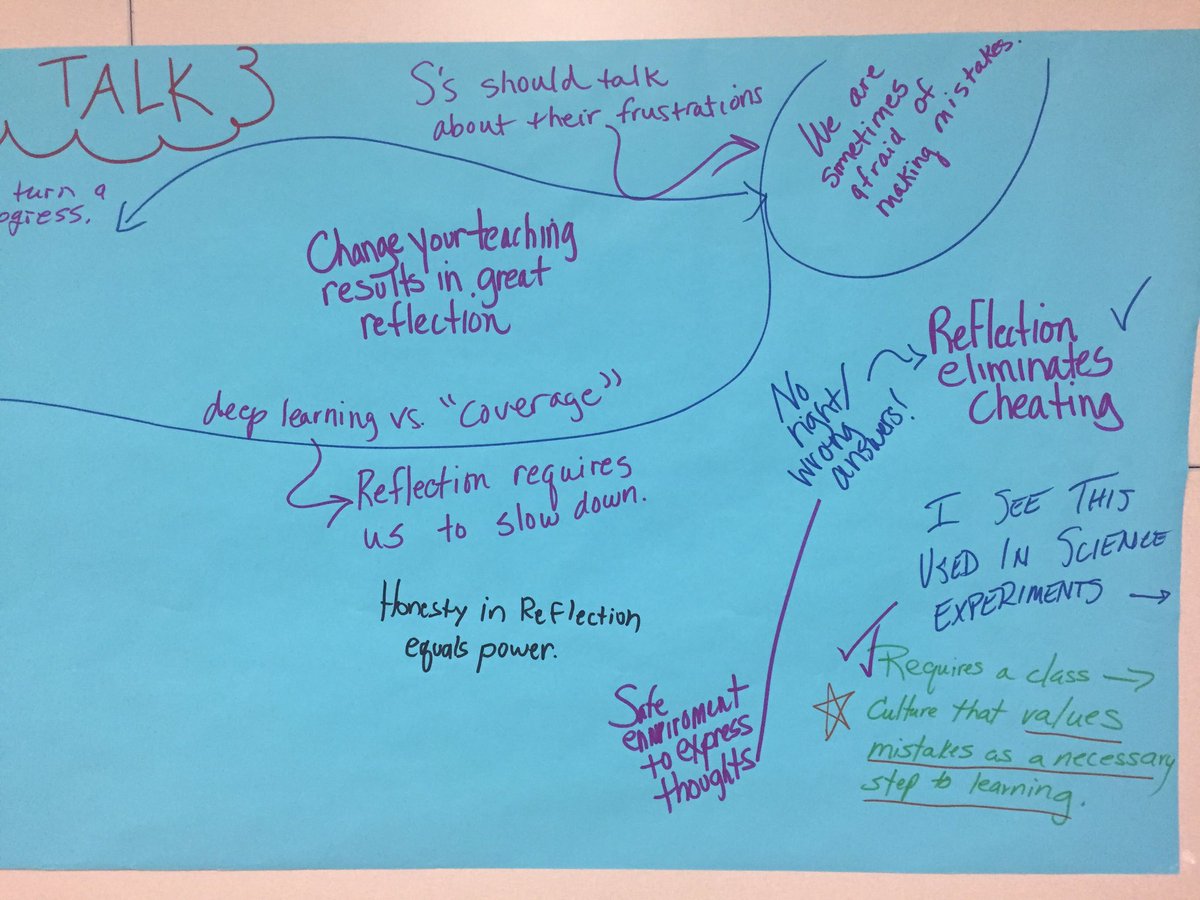 TALK
S's should talk
about their frustrations
We are
sometimes
afraid of
making mistakes.
turn a
ogress.
Change your teaching
results in great
reflection
deep learning vs. "coverage"
Reflection requires
us to slow down.
Honesty in Reflection
equals power.
No
right/
wrong
answers!
Reflection
eliminates
cheating
I SEE THIS
USED IN SCIENCE
EXPERIMENTS →
Requires a class →
Culture that values
mistakes as a necessary
step to learning.
Safe
enviroment
to express
thoughts